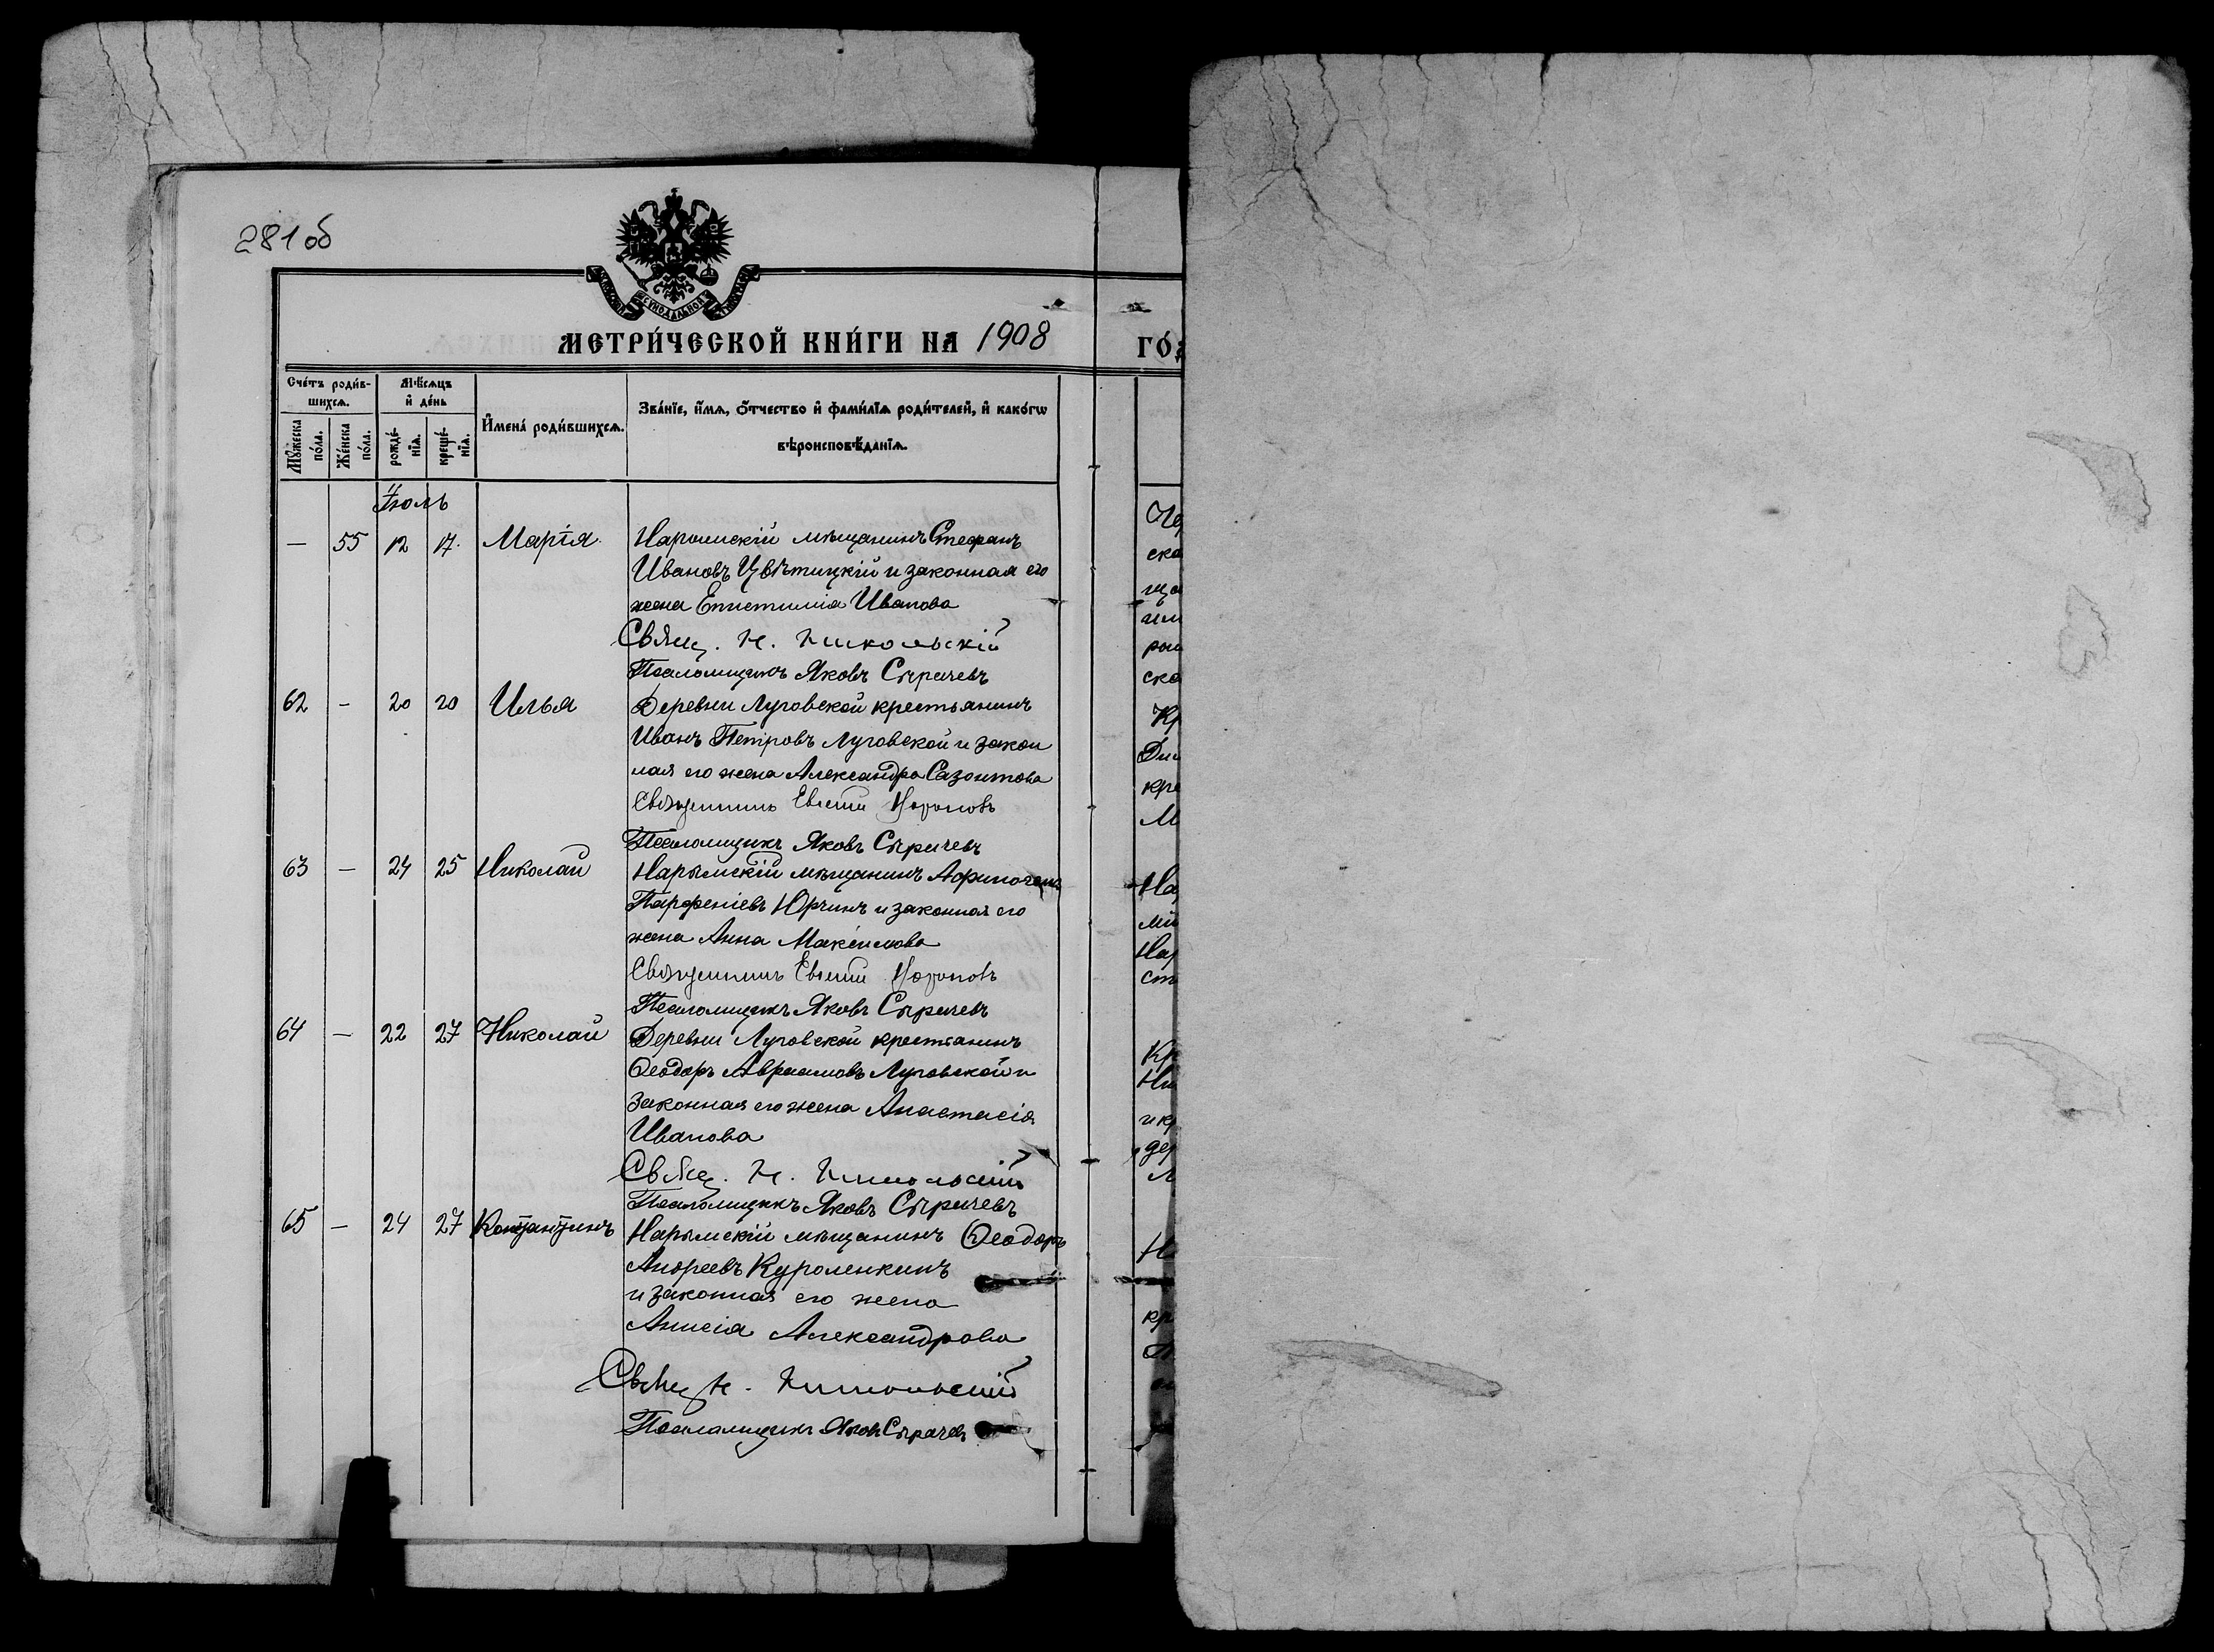 281 об
СѴНОДАЛЬНОЙ
МЕТРИ́ЧЕСКОЙ КНИ́ГИ НА 1908
ГО́
Сче́тъ роди́в-
шихсѧ.
Мꙋ́жеска
по́ла.
Же́нска
по́ла.
Мѣ́сѧцъ
и҆ де́нь
рожде́-
нїѧ.
креще́-
нїѧ.
И҆мена̀ роди́вшихсѧ.
Зва́нїе, и҆́мѧ, ѻ҆́тчество и҆ фами́лїѧ роди́телей, и҆ како́гѡ
вѣроисповѣ́данїѧ.
Іюль
— 55 12 17. Марія. Нарымскій мѣщанинъ Стефанъ
Ивановъ Цвѣтицкій и законная его
жена Епистимія Иванова
Свящ. Н. Никольскій
Псаломщикъ Яковъ Сыричевъ
62 - 20 20 Илья Деревни Луговской крестьянинъ
Иванъ Петровъ Луговской и закон
ная его жена Александра Сазонтова
Священникъ
Псаломщикъ Яковъ Сыричевъ
63 — 24 25 Николай Нарымскій мѣщанинъ
Парфеніевъ Юрчинъ и законная его
жена Анна Максимова
Священникъ
Псаломщикъ Яковъ Сыричевъ
64 — 22 27 Николай Деревни Луговской крестьянинъ
Ѳеодоръ Авраамовъ Луговской и
законная его жена Анастасія
Иванова
Свящ. Н. Никольскій
Псаломщикъ Яковъ Сыричевъ
65 — 24 27 Константинъ Нарымскій мѣщанинъ Ѳеодоръ
Андреевъ Куроленкинъ
и законная его жена
Анисія Александрова
Свящ Н. Никольскій
Псаломщикъ Яковъ Сыричевъ
ска
ща
ска
Кр
кре
М
На
На
ст
Кр
и кр
дер
Л
кр